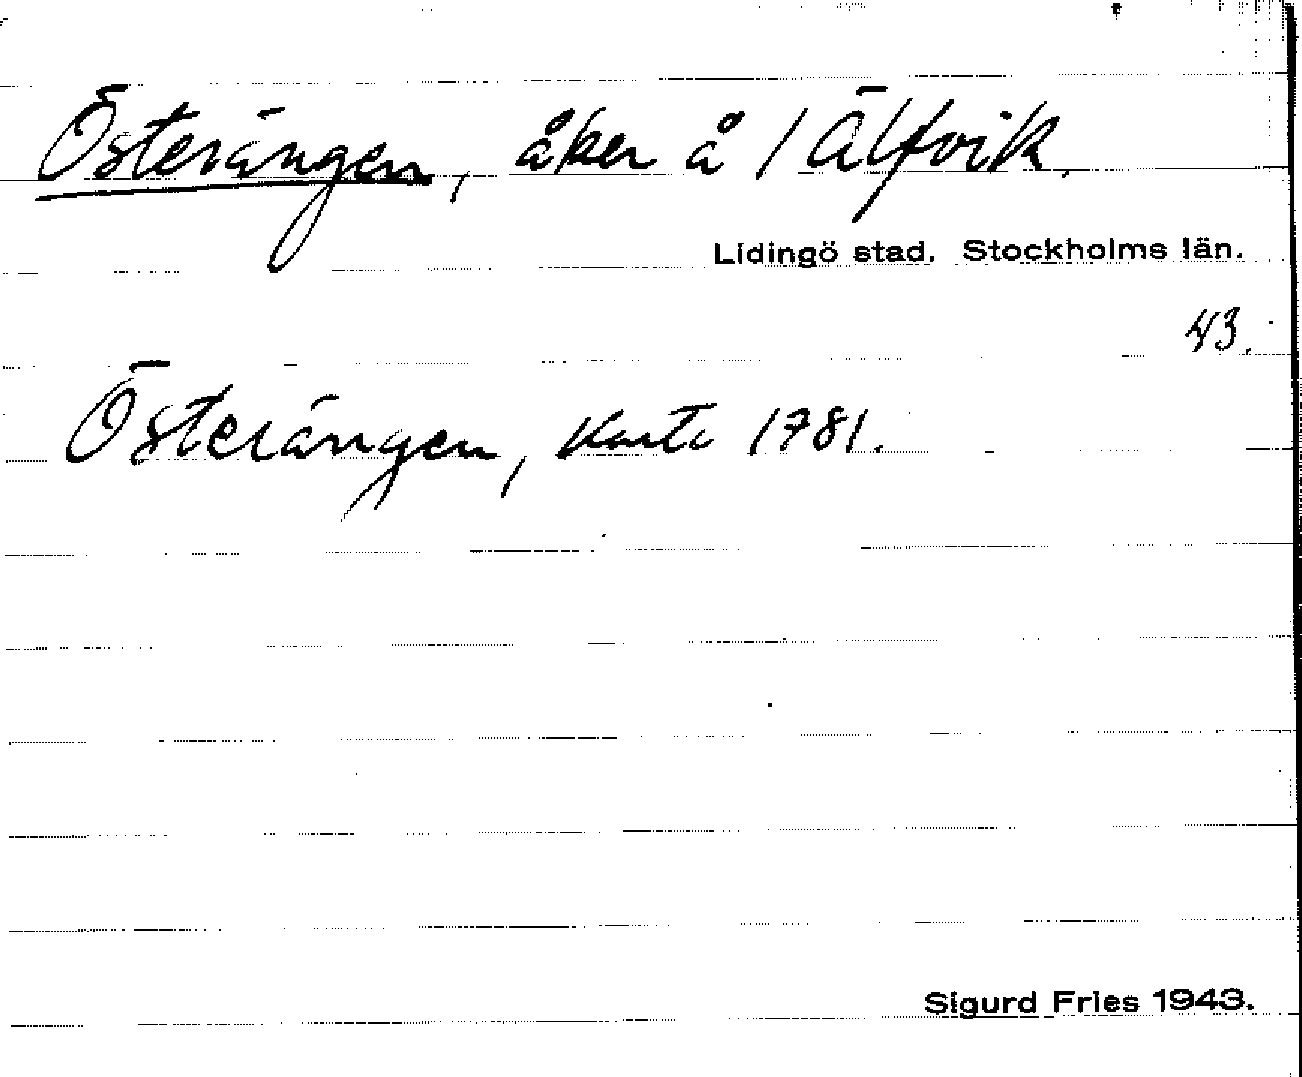 Österängen, åker å / Älfvik.
Lidingö stad. Stockholms län.
43.
Österängen, karta 1781.
Sigurd Fries 1943.